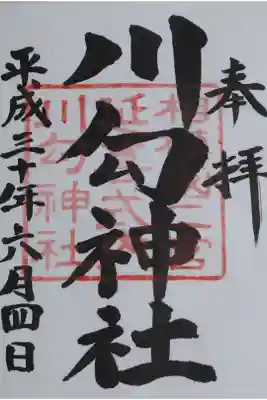 奉拝
川勾神社
平成三十年六月四日
相模国二宮
延喜式内
川勾神社